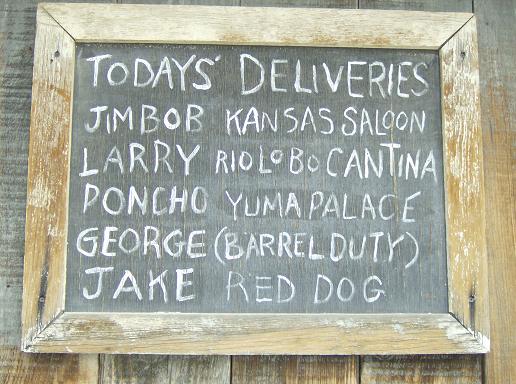 TODAYS' DELIVERIES
JIMBOB KANSAS SALOON
LARRY RIO LOBO CANTINA
PONCHO YUMA PALACE
GEORGE (BARREL DUTY)
JAKE RED DOG